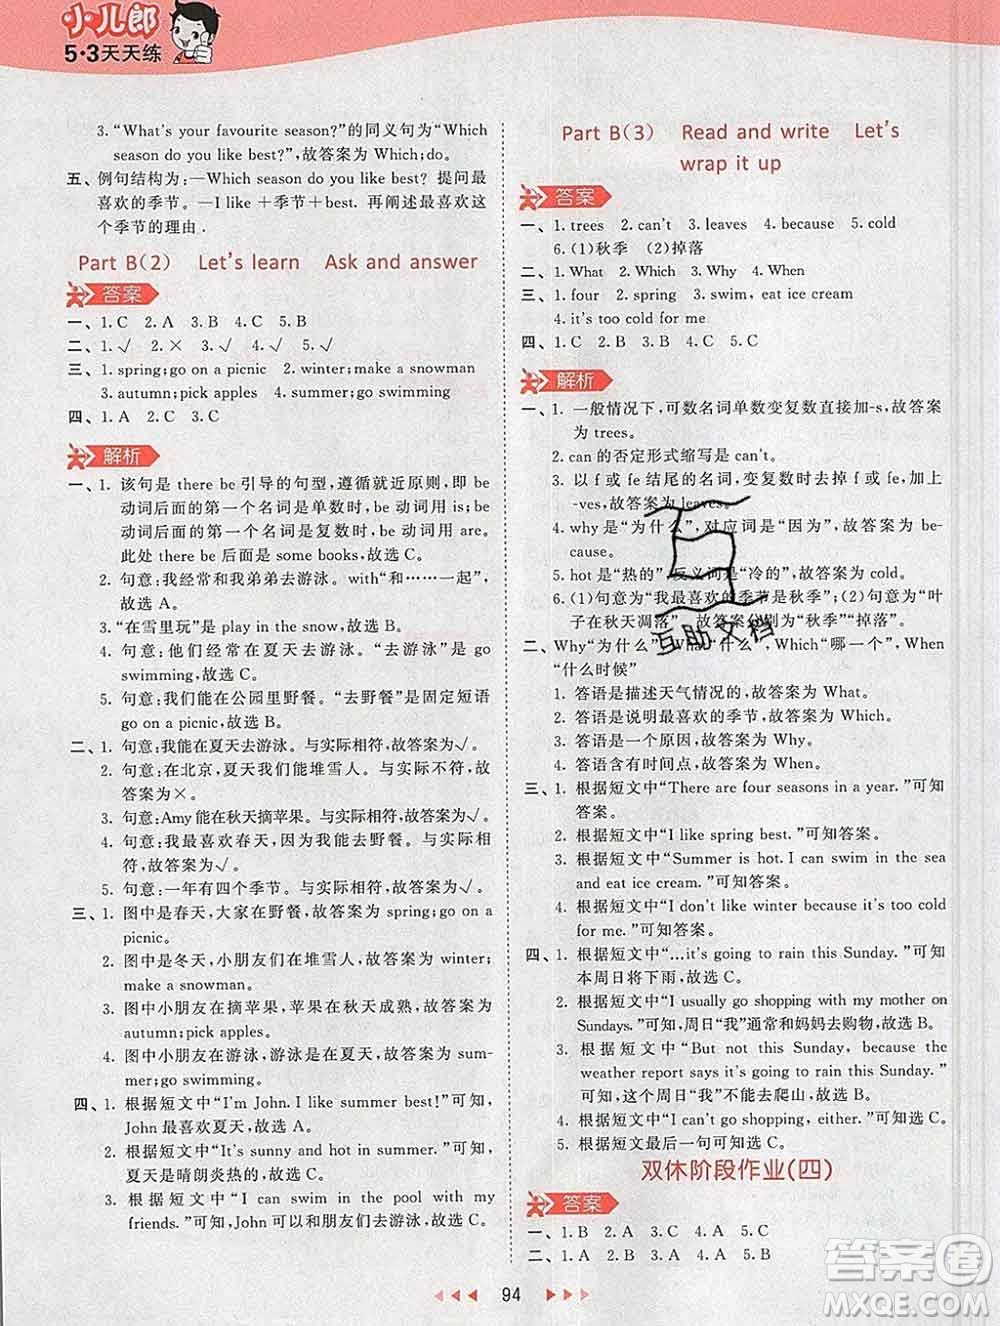 小儿郎
5·3天天练
3. “What's your favourite season?”的同义句为“Which
season do you like best?”,故答案为 Which;do。
五、例句结构为:—Which season do you like best? 提问最
喜欢的季节。—I like +季节+best. 再阐述最喜欢这
个季节的理由.
Part B(2) Let's learn Ask and answer
答案
一、1. C 2. A 3. B 4. C 5. B
二、1. √ 2. × 3. √ 4. √ 5. √
三、1. spring;go on a picnic 2. winter;make a snowman
3. autumn;pick apples 4. summer;go swimming
四、1. A 2. C 3. C
解析
一、1. 该句是 there be 引导的句型,遵循就近原则,即 be
动词后面的第一个名词是单数时,be 动词用 is;be
动词后面的第一个名词是复数时,be 动词用 are。
此处 there be 后面是 some books,故选 C。
2. 句意:我经常和我弟弟去游泳。with“和……一起”,
故选 A。
3. “在雪里玩”是 play in the snow,故选 B。
4. 句意:他们经常在夏天去游泳。“去游泳”是 go
swimming,故选 C。
5. 句意:他们能在公园里野餐。“去野餐”是固定短语
go on a picnic,故选 B。
二、1. 句意:我能在夏天去游泳。与实际相符,故答案为√。
2. 句意:在北京,夏天我们能堆雪人。与实际不符,故
答案为×。
3. 句意:Amy能在秋天摘苹果。与实际相符,故答案为√。
4. 句意:我最喜欢春天,因为我能去野餐。与实际相
符,故答案为√。
5. 句意:一年有四个季节。与实际相符,故答案为√。
三、1. 图中是春天,大家在野餐,故答案为 spring;go on a
picnic。
2. 图中是冬天,小朋友们在堆雪人,故答案为 winter;
make a snowman。
3. 图中小朋友在摘苹果,苹果在秋天成熟,故答案为
autumn;pick apples。
4. 图中小朋友在游泳,游泳是在夏天,故答案为 sum-
mer;go swimming。
四、1. 根据短文中“I'm John. I like summer best!”可知,
John最喜欢夏天,故选 A。
2. 根据短文中“It's sunny and hot in summer.”可知,
夏天是晴朗炎热的,故选 C。
3. 根据短文中“I can swim in the pool with my
friends.”可知,John可以和朋友们去游泳,故选 C。
Part B(3) Read and write Let's
wrap it up
答案
一、1. trees 2. can't 3. leaves 4. because 5. cold
6. (1)秋季 (2)掉落
二、1. What 2. Which 3. Why 4. When
三、1. four 2. spring 3. swim, eat ice cream
4. it's too cold for me
四、1. C 2. B 3. C 4. C 5. C
解析
一、1. 一般情况下,可数名词单数变复数直接加-s,故答案
为 trees。
2. can 的否定形式缩写是 can't。
3. 以 f 或 fe 结尾的名词,变复数时去掉 f 或 fe,加上
-ves,故答案为 leaves。
4. why 是“为什么”,对应词是“因为”,故答案为 be-
cause。
5. hot 是“热的”,反义词是“冷的”,故答案为 cold。
6. (1)句意为“我最喜欢的季节是秋季”;(2)句意为“叶
子在秋天凋落”。故答案分别为“秋季”“掉落”。
二、Why“为什么”,What“什么”,Which“哪一个”,When
“什么时候”
1. 答语是描述天气情况的,故答案为 What。
2. 答语是说明最喜欢的季节,故答案为 Which。
3. 答语是一个原因,故答案为 Why。
4. 答语含有时间点,故答案为 When。
三、1. 根据短文中“There are four seasons in a year.”可知
答案。
2. 根据短文中“I like spring best.”可知答案。
3. 根据短文中“Summer is hot. I can swim in the sea
and eat ice cream.”可知答案。
4. 根据短文中“I don't like winter because it's too cold
for me.”可知答案。
四、1. 根据短文中“...it's going to rain this Sunday.”可知
本周日将下雨,故选 C。
2. 根据短文中“I usually go shopping with my mother on
Sundays.”可知,周日“我”通常和妈妈去购物,故选 B。
3. 根据短文中“But not this Sunday, because the
weather report says it's going to rain this Sunday.”
可知,这个周日“我”不能去爬山,故选 C。
4. 根据短文中“I can't go shopping, either.”可知选 C。
5. 根据短文最后一句可知选 C。
双休阶段作业(四)
答案
一、1. B 2. A 3. C 4. A 5. C
二、1. A 2. B 3. A 4. A 5. B
94
互助文档
答案圈
MXQE.COM